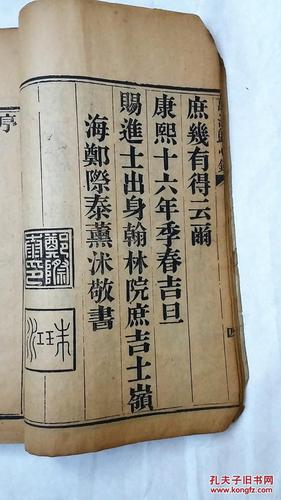 庶幾有得云爾
康熙十六年季春吉旦
賜進士出身翰林院庶吉士嶺
海鄭際泰薰沐敬書
四
序
孔夫子旧书网